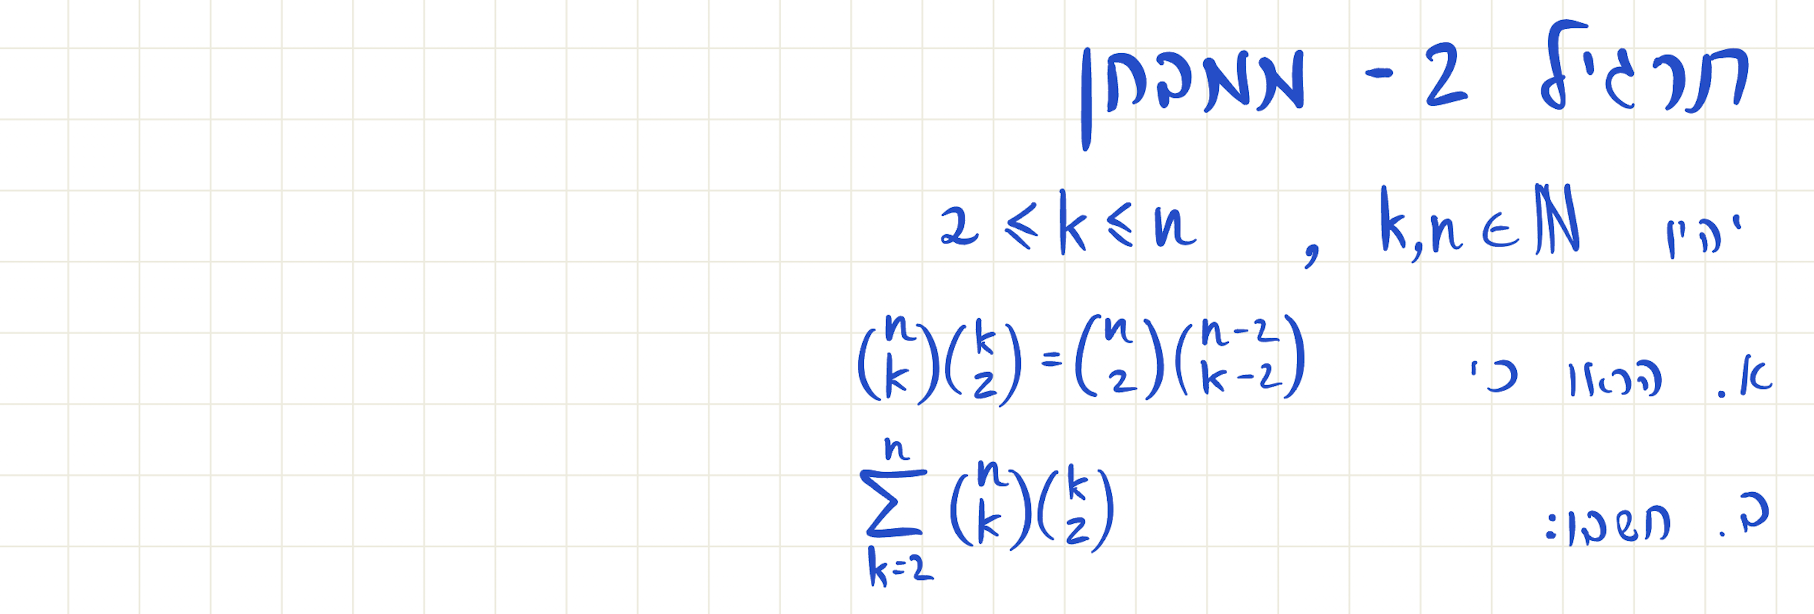 תרגיל 2 - ממבחן
יהיו k,n ∈ ℕ , 2 ≤ k ≤ n
א. הראו כי \binom{n}{k}\binom{k}{2} = \binom{n}{2}\binom{n-2}{k-2}
ב. חשבו: \sum_{k=2}^{n} \binom{n}{k}\binom{k}{2}